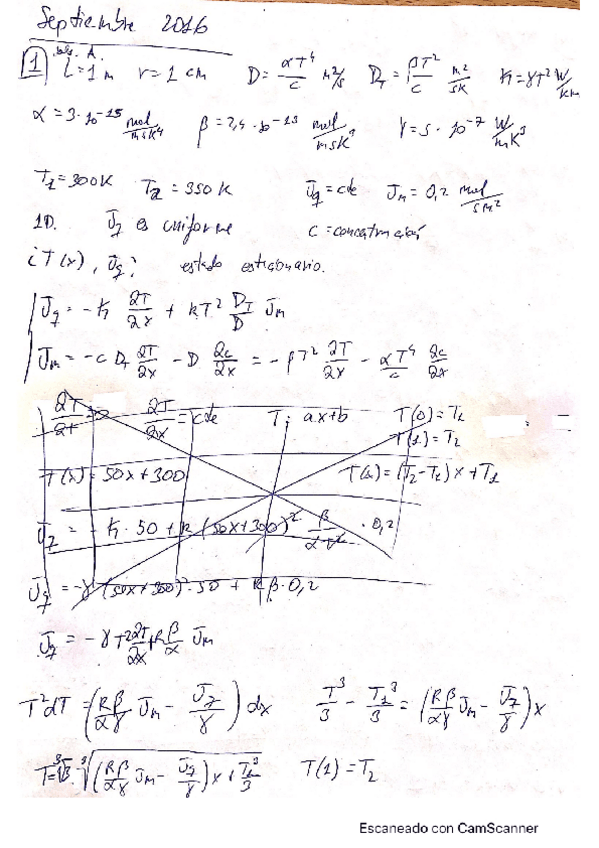 Septiembre 2016
1 L=1 m r=1 cm D = αT⁴/c m²/s D_T = βT²/c m²/sK κ=γT² W/Km
α=3·10⁻¹⁵ mol/msK⁴ β=2,4·10⁻¹³ mol/msK³ γ=5·10⁻⁷ W/mK³
T₁=300K T₂=350K J_q=cte J_m=0,2 mol/sm²
1D. J_q es uniforme c=concentración
¿T(x), J_q? estado estacionario.
J_q = -κ ∂T/∂x + RT² D_T/D J_m
J_m = -c D_T ∂T/∂x - D ∂c/∂x = -βT² ∂T/∂x - αT⁴/c ∂c/∂x
∂T/∂t = 0 ∂T/∂x = cte T = ax+b T(0)=T₁
T(1)=T₂
T(x) = 50x+300 T(x) = (T₂-T₁)x+T₁
J_q = -κ·50 + R(50x+300)² β/αT² ·0,2
J_q = -γ(50x+300)²·50 + Rβ·0,2
J_q = -γT² ∂T/∂x + R β/α J_m
T²dT = (Rβ/αγ J_m - J_q/γ) dx T³/3 - T₁³/3 = (Rβ/αγ J_m - J_q/γ) x
T=∛3·∛((Rβ/αγ J_m - J_q/γ)x + T₁³/3) T(1)=T₂
Escaneado con CamScanner